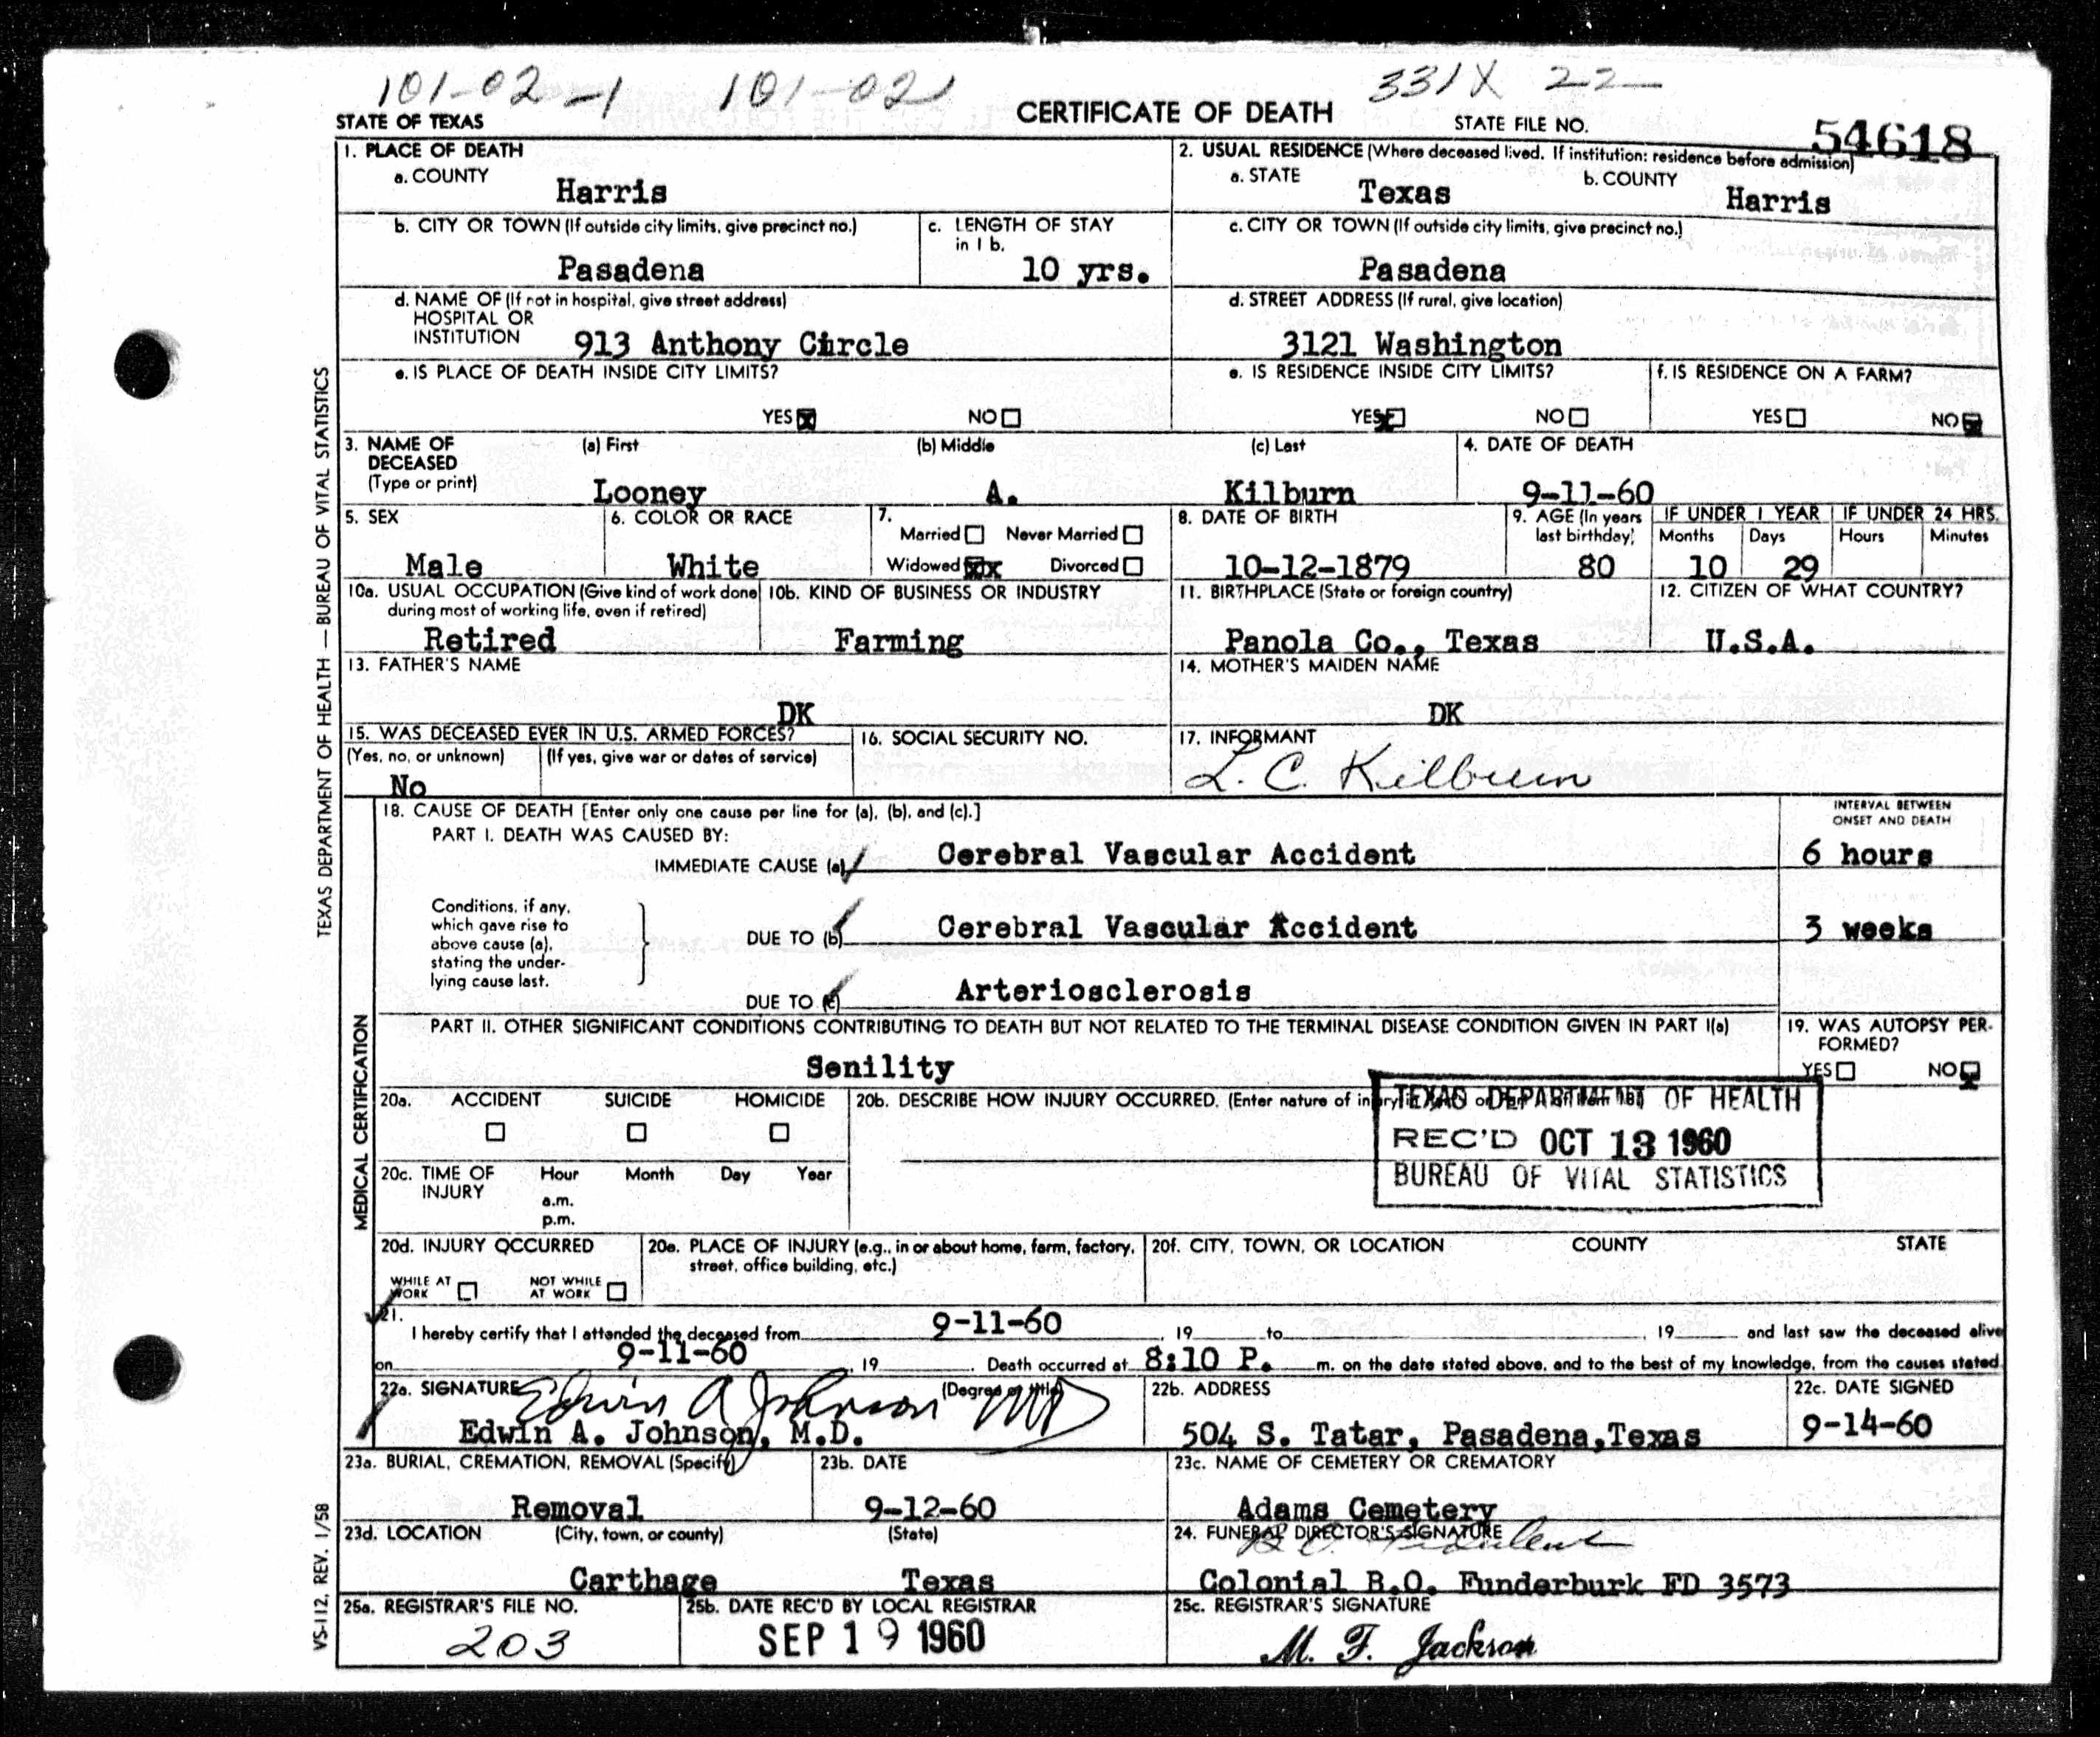 101-02-1 101-021 331X 22
STATE OF TEXAS CERTIFICATE OF DEATH STATE FILE NO. 54618
1. PLACE OF DEATH
a. COUNTY
Harris
2. USUAL RESIDENCE (Where deceased lived. If institution: residence before admission)
a. STATE b. COUNTY
Texas Harris
b. CITY OR TOWN (If outside city limits, give precinct no.)
Pasadena
c. LENGTH OF STAY
in 1 b.
10 yrs.
c. CITY OR TOWN (If outside city limits, give precinct no.)
Pasadena
d. NAME OF (If not in hospital, give street address)
HOSPITAL OR
INSTITUTION 913 Anthony Circle
d. STREET ADDRESS (If rural, give location)
3121 Washington
e. IS PLACE OF DEATH INSIDE CITY LIMITS?
YES NO
e. IS RESIDENCE INSIDE CITY LIMITS?
YES NO
f. IS RESIDENCE ON A FARM?
YES NO
3. NAME OF
DECEASED
(Type or print)
(a) First (b) Middle (c) Last
Looney A. Kilburn
4. DATE OF DEATH
9-11-60
5. SEX
Male
6. COLOR OR RACE
White
7.
Married Never Married
Widowed Divorced
8. DATE OF BIRTH
10-12-1879
9. AGE (In years
last birthday)
80
IF UNDER 1 YEAR IF UNDER 24 HRS.
Months Days Hours Minutes
10 29
10a. USUAL OCCUPATION (Give kind of work done
during most of working life, even if retired)
Retired
10b. KIND OF BUSINESS OR INDUSTRY
Farming
11. BIRTHPLACE (State or foreign country)
Panola Co., Texas
12. CITIZEN OF WHAT COUNTRY?
U.S.A.
13. FATHER'S NAME
DK
14. MOTHER'S MAIDEN NAME
DK
15. WAS DECEASED EVER IN U.S. ARMED FORCES?
(Yes, no, or unknown) (If yes, give war or dates of service)
No
16. SOCIAL SECURITY NO.
17. INFORMANT
L. C. Kilburn
18. CAUSE OF DEATH [Enter only one cause per line for (a), (b), and (c).]
INTERVAL BETWEEN
ONSET AND DEATH
PART I. DEATH WAS CAUSED BY:
IMMEDIATE CAUSE (a) Cerebral Vascular Accident 6 hours
Conditions, if any,
which gave rise to
above cause (a),
stating the under-
lying cause last.
DUE TO (b) Cerebral Vascular Accident 3 weeks
DUE TO (c) Arteriosclerosis
PART II. OTHER SIGNIFICANT CONDITIONS CONTRIBUTING TO DEATH BUT NOT RELATED TO THE TERMINAL DISEASE CONDITION GIVEN IN PART I(a)
Senility
19. WAS AUTOPSY PER-
FORMED?
YES NO
20a. ACCIDENT SUICIDE HOMICIDE
20b. DESCRIBE HOW INJURY OCCURRED. (Enter nature of injury
TEXAS DEPARTMENT OF HEALTH
REC'D OCT 13 1960
BUREAU OF VITAL STATISTICS
20c. TIME OF
INJURY
Hour Month Day Year
a.m.
p.m.
20d. INJURY OCCURRED
WHILE AT
WORK
NOT WHILE
AT WORK
20e. PLACE OF INJURY (e.g., in or about home, farm, factory,
street, office building, etc.)
20f. CITY, TOWN, OR LOCATION COUNTY STATE
21.
I hereby certify that I attended the deceased from 9-11-60, 19 to , 19 and last saw the deceased alive
on 9-11-60, 19 . Death occurred at 8:10 P. m. on the date stated above, and to the best of my knowledge, from the causes stated.
22a. SIGNATURE (Degree or title)
Edwin A Johnson MD
Edwin A. Johnson, M.D.
22b. ADDRESS
504 S. Tatar, Pasadena,Texas
22c. DATE SIGNED
9-14-60
23a. BURIAL, CREMATION, REMOVAL (Specify)
Removal
23b. DATE
9-12-60
23c. NAME OF CEMETERY OR CREMATORY
Adams Cemetery
23d. LOCATION (City, town, or county) (State)
Carthage Texas
24. FUNERAL DIRECTOR'S SIGNATURE
Colonial B.O. Funderburk FD 3573
25a. REGISTRAR'S FILE NO.
203
25b. DATE REC'D BY LOCAL REGISTRAR
SEP 19 1960
25c. REGISTRAR'S SIGNATURE
M. F. Jackson
TEXAS DEPARTMENT OF HEALTH — BUREAU OF VITAL STATISTICS
MEDICAL CERTIFICATION
VS-112, REV. 1/58